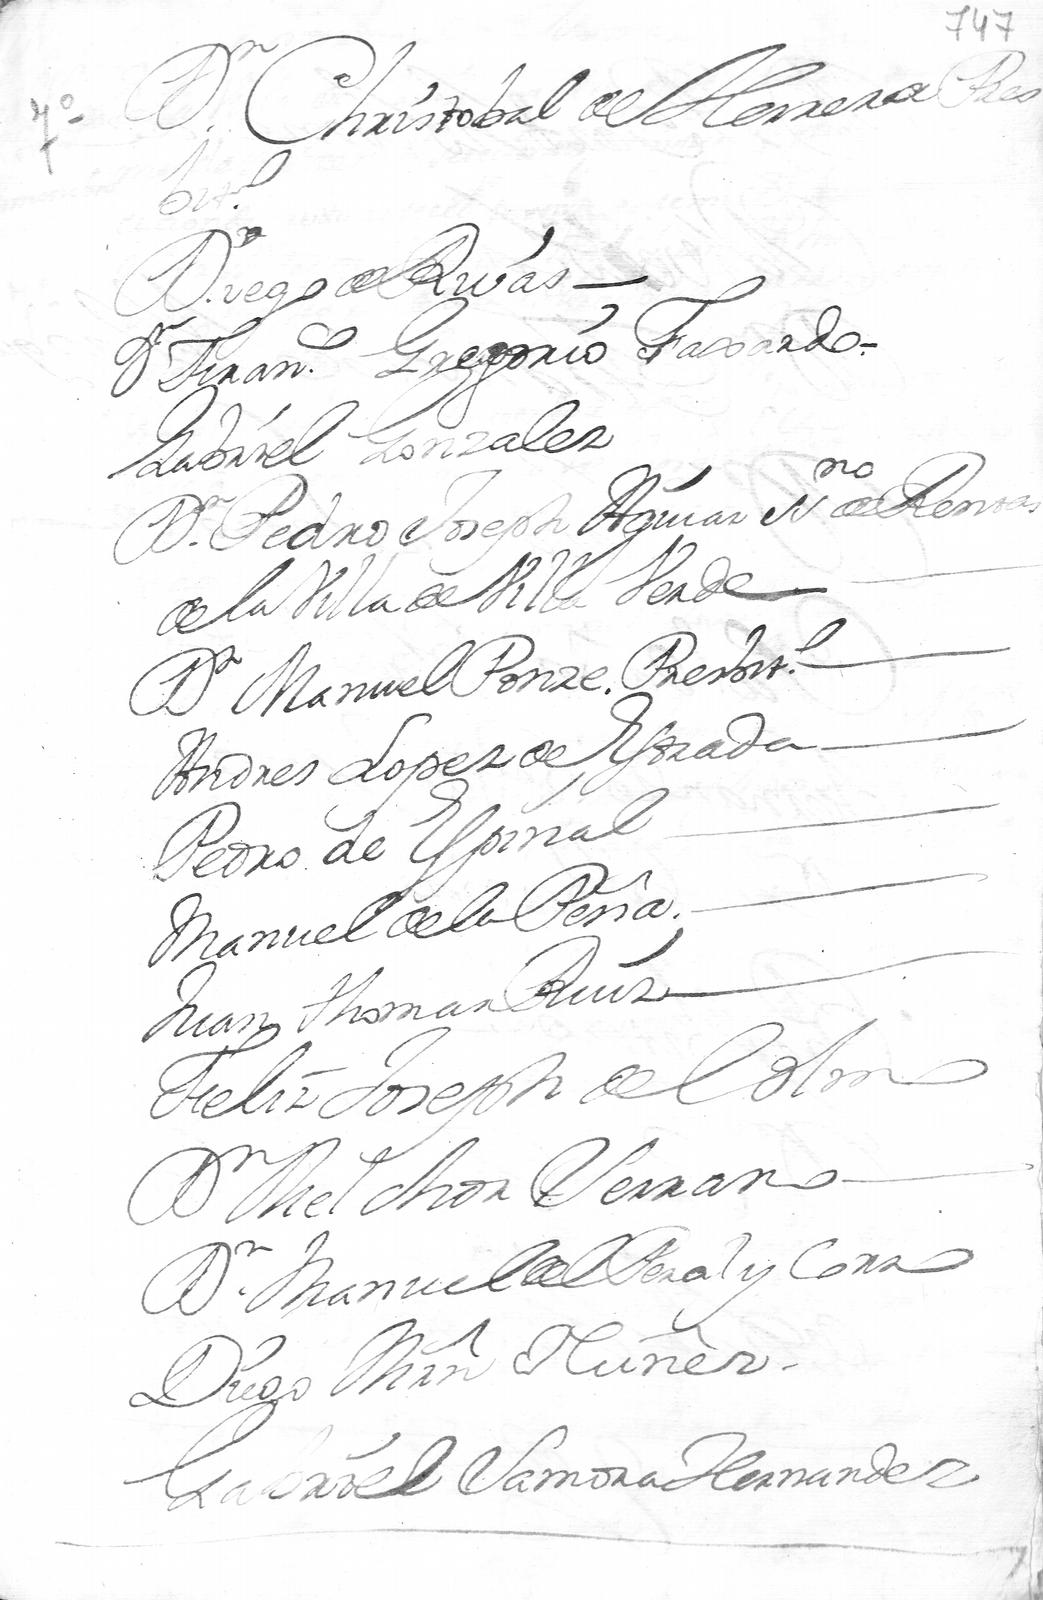 747
7º
Dn. Christobal de Herrera Pres
bitl.
Diego de Rivas
Dn Franco. Gregorio Faxardo.
Gabriel Gonzales
Dn. Pedro Joseph Aguiar Nno de Rentas
de la Villa de Villa Verde
Dn Manuel Ponze. Presbitl.
Andres Lopez de Estrada
Pedro de Espinal
Manuel de la Peña.
Juan Thomas Ruiz
Feliz Joseph de
Dn Melchor Serrano
Dn. Manuel del Peral y
Diego Mrñ Nuñez.
Gabriel Samora Hernandez